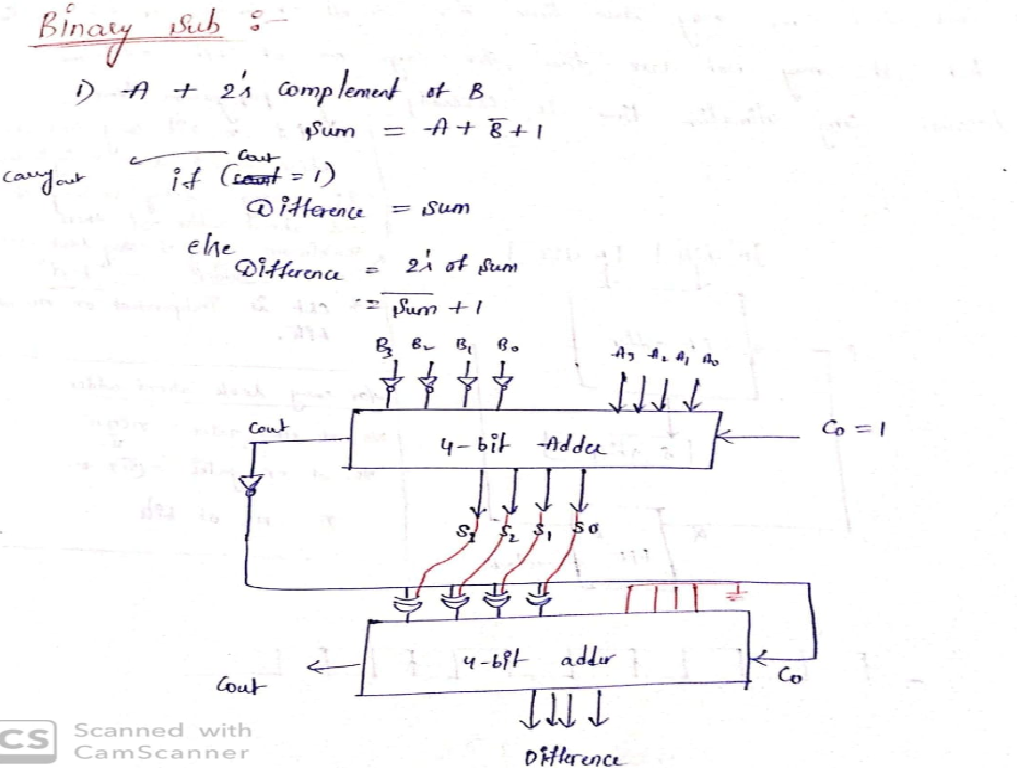 Binary Sub :-
1) A + 2's complement of B
Sum = A + B̅ + 1
carry out
Cout
if (count = 1)
Difference = Sum
else
Difference = 2's of Sum
= S̅u̅m̅ + 1
B3 B2 B1 B0
A3 A2 A1 A0
Cout
4-bit Adder
C0 = 1
S3 S2 S1 S0
4-bit adder
Cout
C0
Difference
CS
Scanned with
CamScanner